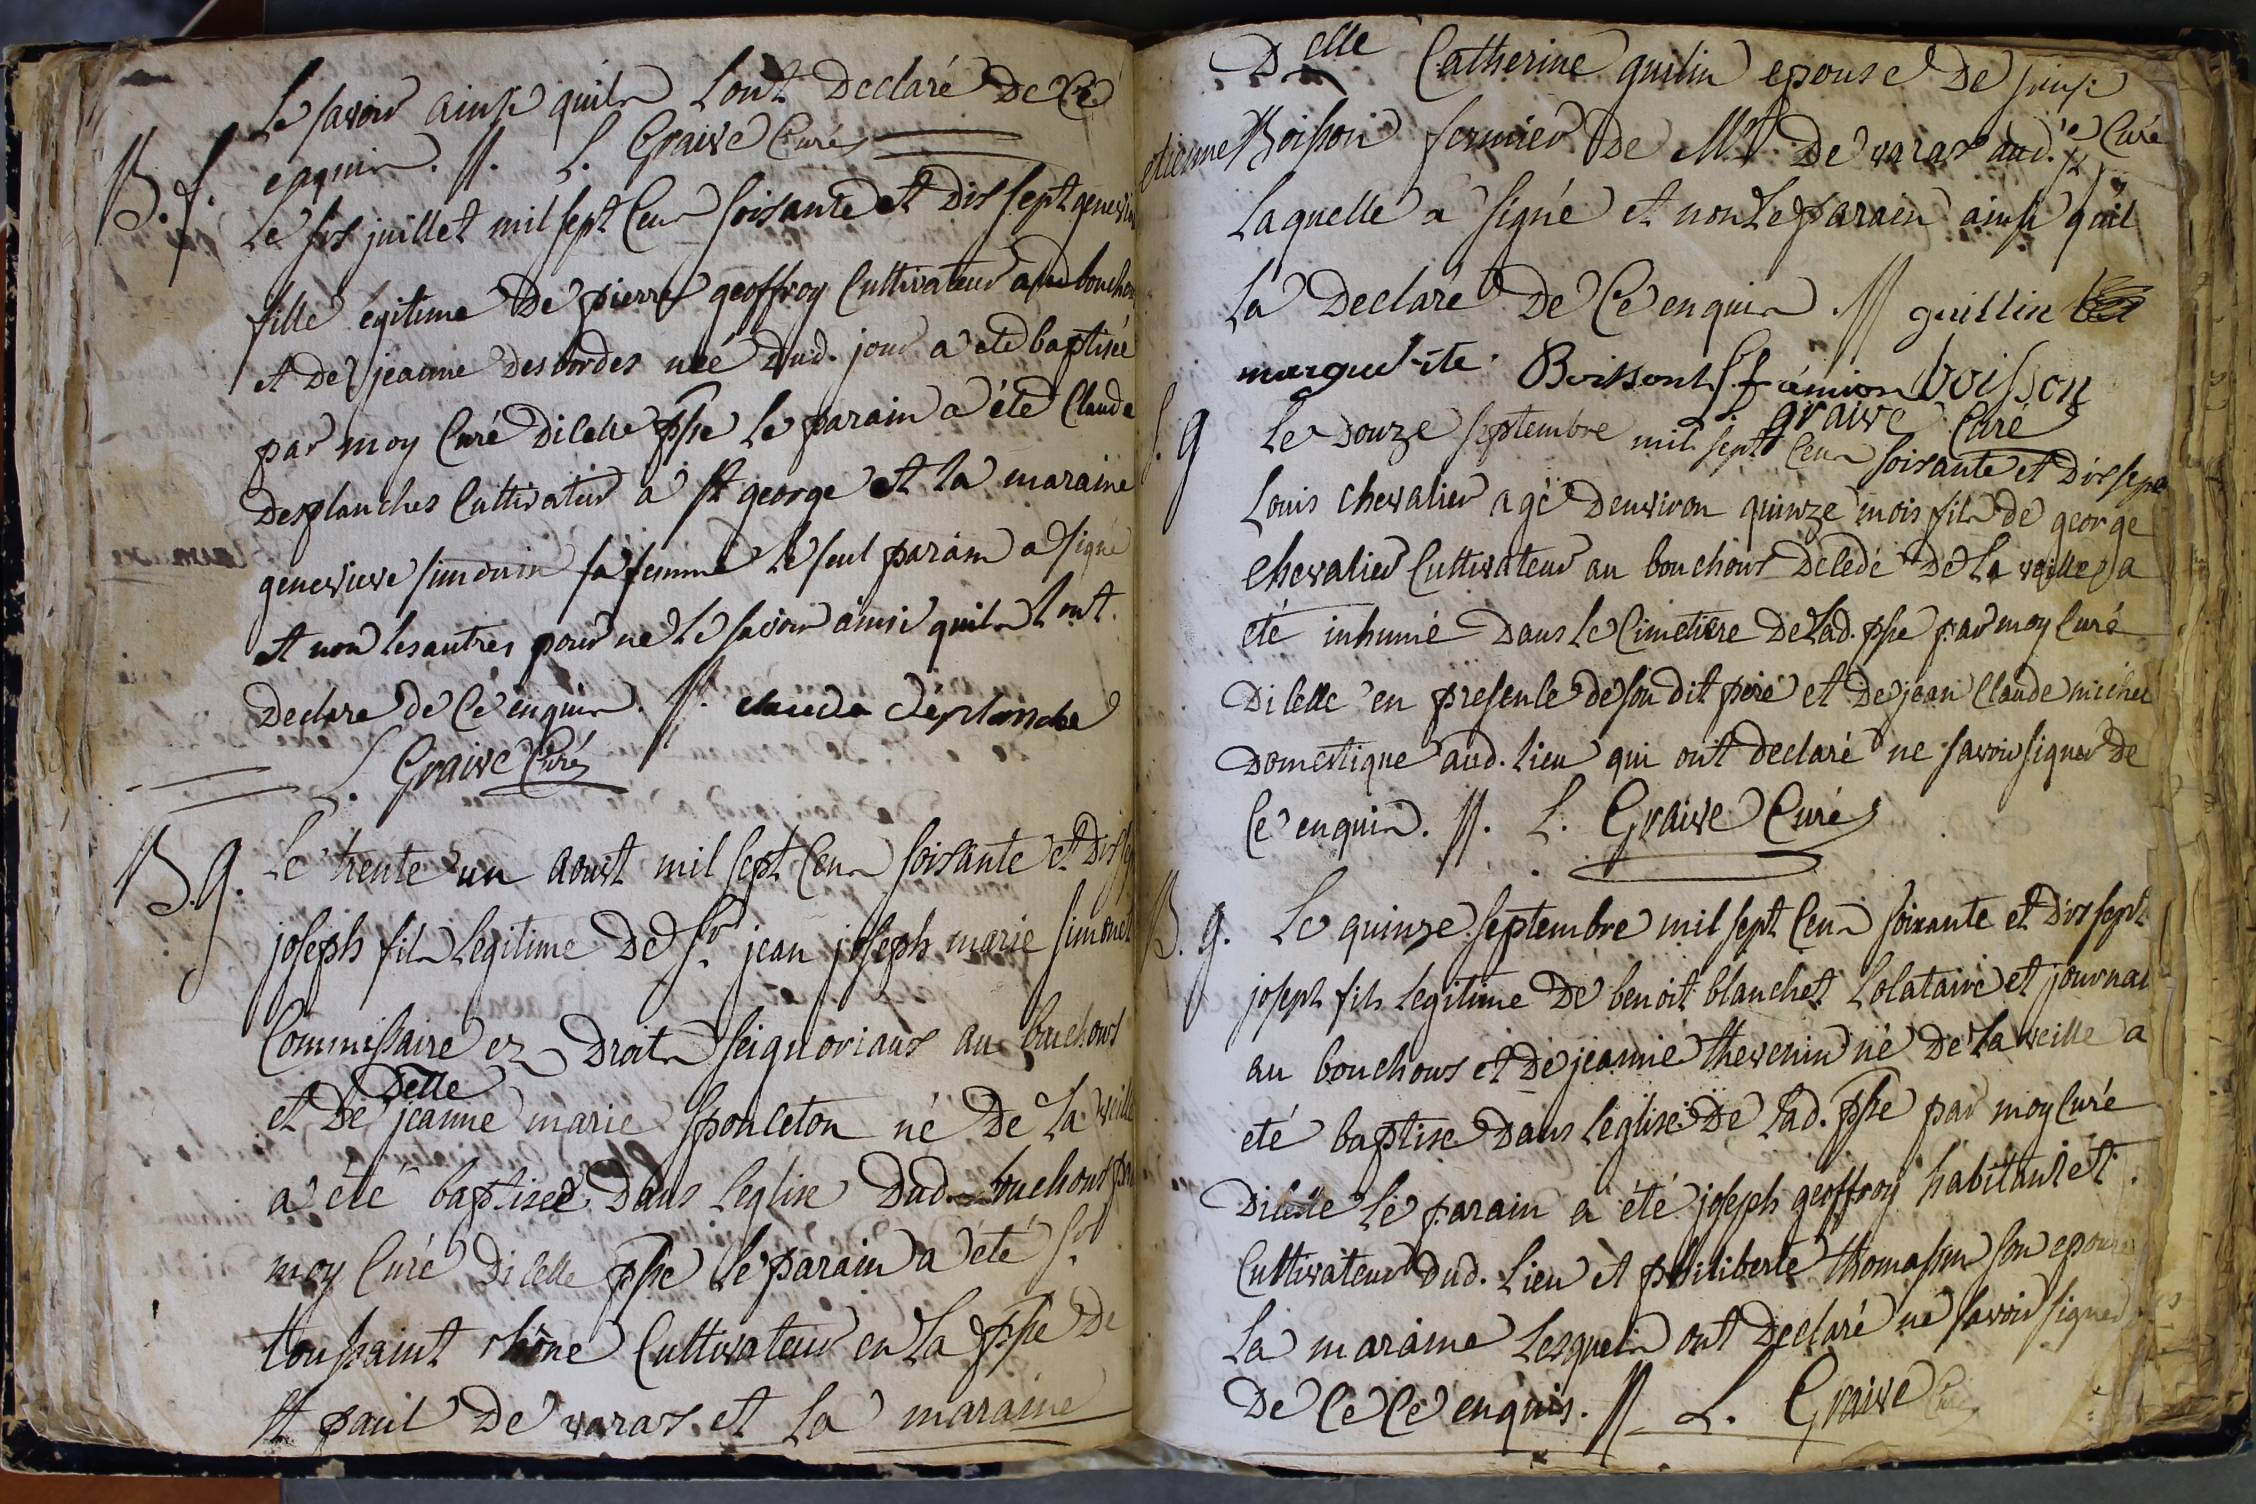 Le savoir ainsi quils Lont Declaré De Ce
enquis. //. L. Graive Curé
B. f.
Le six juillet mil sept Cens soixante et Dix sept genevieve
fille légitime De pierre geoffroy Cultivateur aud bouchoux
et De jeanne Desbordes neé Dud. jour a eté baptisée
par moy Curé Dicelle psse Le parain a été Claude
Desplanches Cultivateur a st george et La maraine
genevieve simonin sa femme Le seul parain a signé
et non les autres pour ne Le savoir ainsi quils Lont
Declare de Ce enquis. //. claude déplanche
L. Graive Curé
B. g.
Le trente un aoust mil sept Cens soixante et Dix sept
joseph fils Legitime De Sr jean joseph marie simonet
Commissaire ez Droits seignoriaux au bouchoux
et De Delle jeanne marie ponceton né De La veille
a été baptiseé Dans Leglise Dud. bouchoux par
moy Curé Dicelle psse Le parain a été Sr
toussaint rhône Cultivateur en La psse De
st paul De varax et La maraine
Delle Catherine guilin epouse De sieur
etienne Boisson fermier De Mr De varax aud.
Laquelle a signé et non Le parain ainsi quil
La Declaré De Ce enquis. // guillin
marguerite Boisson frémion boisson
graive Curé
S. g
Le Douze septembre mil sept Cens soixante et Dix sept
Louis chevalier agé Denviron quinze mois fils de george
Chevalier Cultivateur au bouchoux Décédé De La veille a
eté inhumé Dans Le Cimetiere De Lad. psse par moy Curé
Dicelle en presence de son dit pere et De jean Claude michel
Domestique aud. Lieu qui ont declaré ne savoir signer De
Ce enquis. //. L. Graive Curé
B. g.
Le quinze septembre mil sept Cens soixante et Dix sept
joseph fils Legitime De benoit blanchet Locataire et journal
au bouchoux et De jeanne thevenin né De La veille a
eté baptise Dans Léglise De Lad. psse par moy Curé
Dicelle Le parain a été joseph geoffroy habitant et
Cultivateur Dud. Lieu et philiberte thomassin son epouse
La maraine Lesquels ont Declaré ne savoir signer
De Ce Ce enquis. // L. Graive Curé